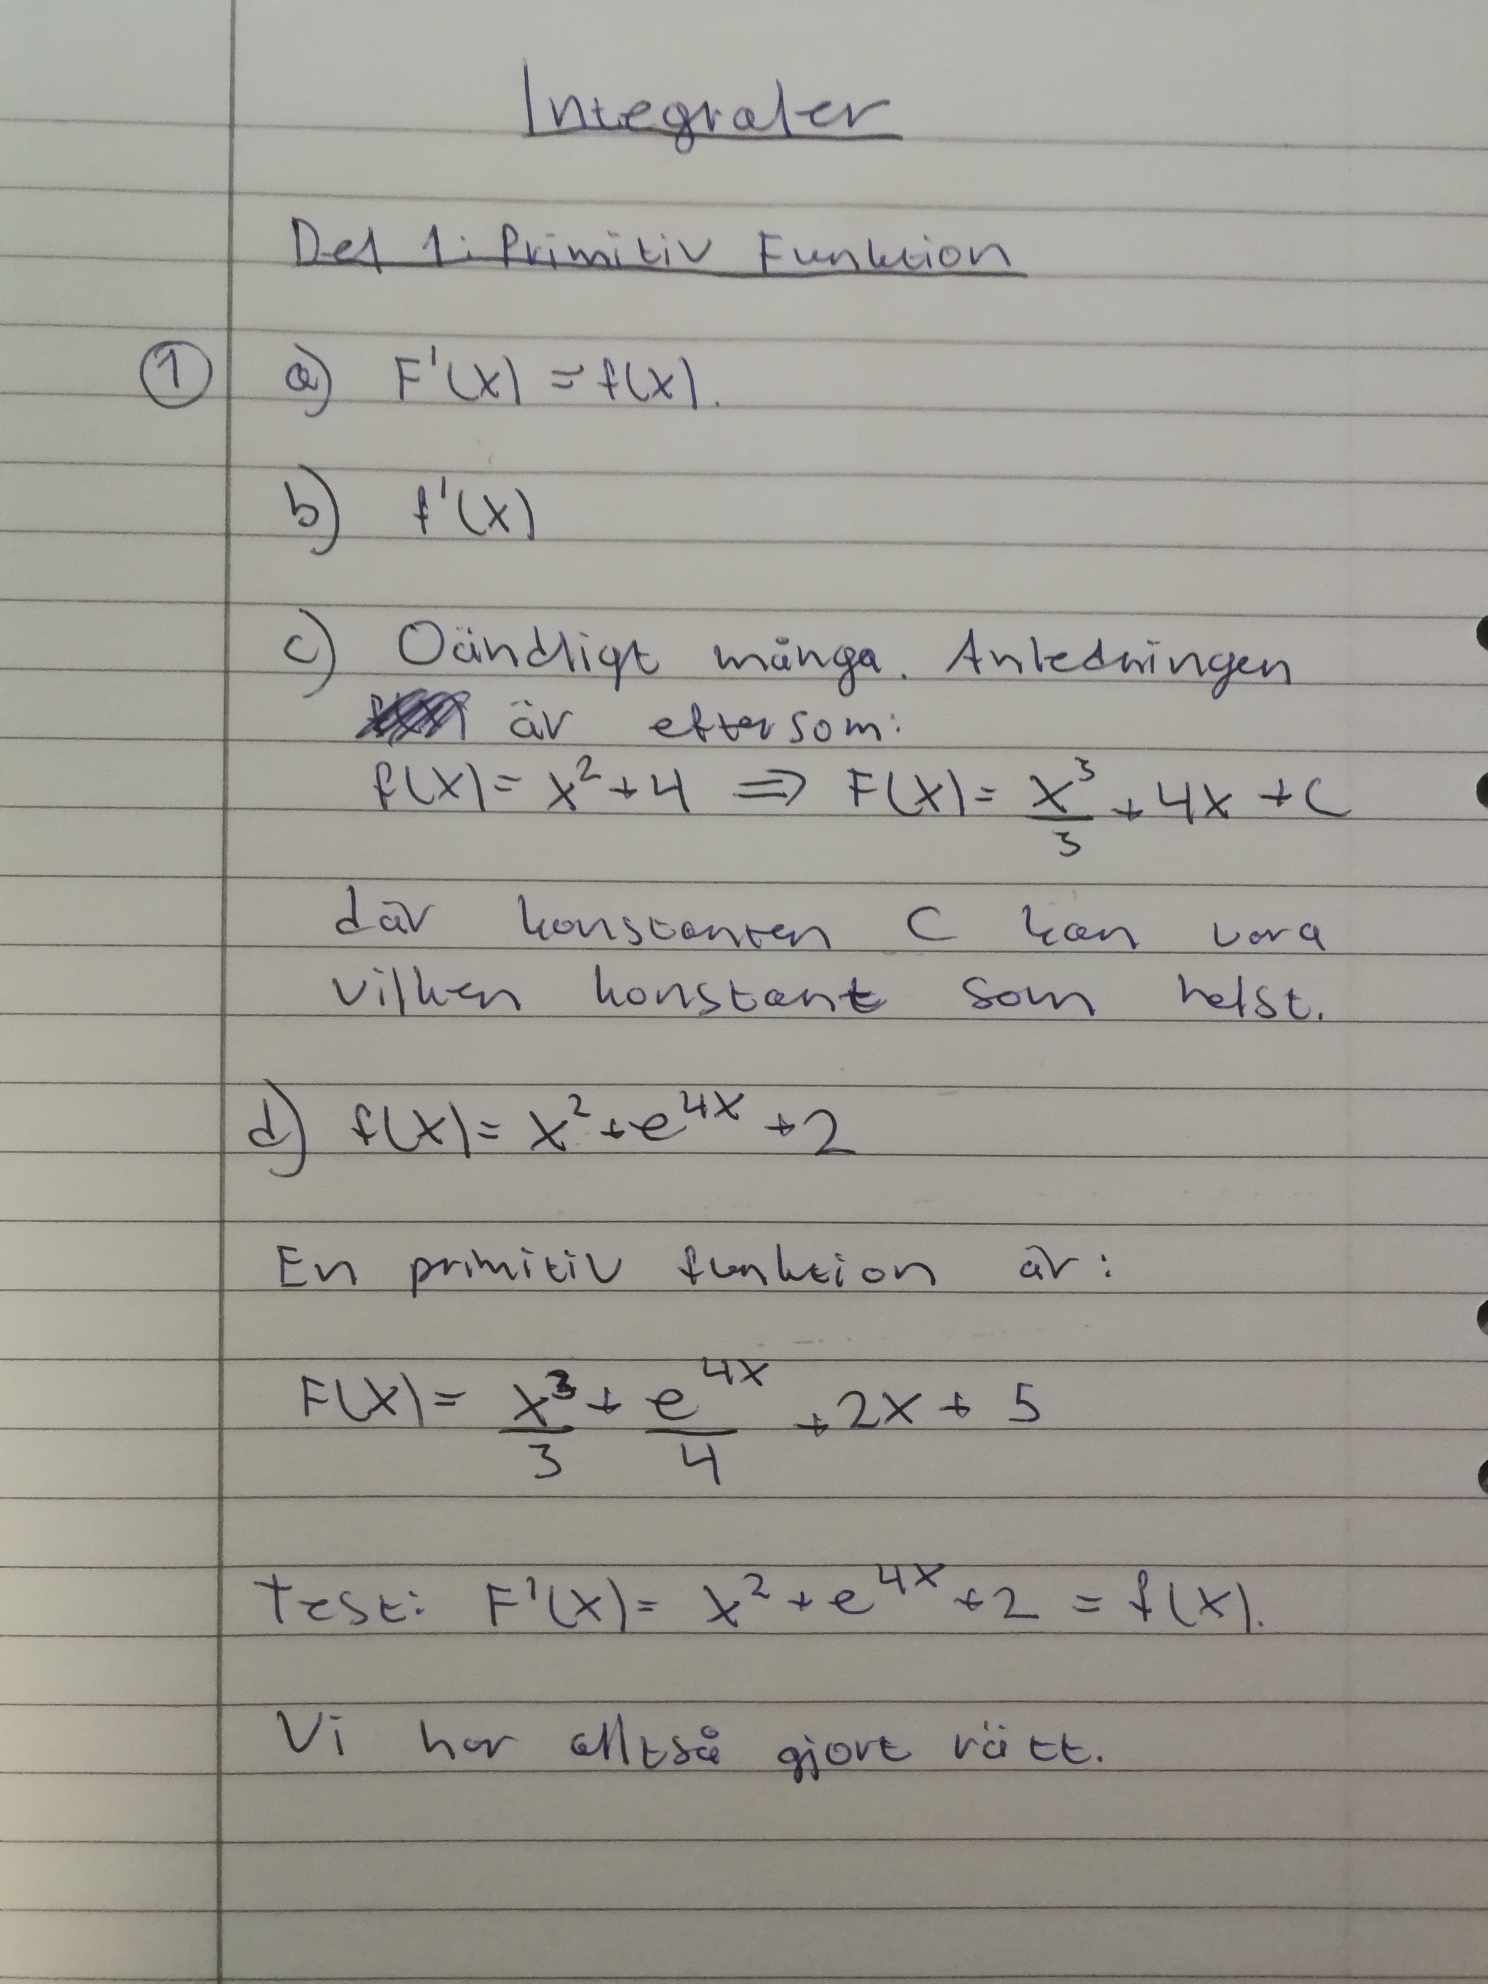 Integraler
Del 1: Primitiv Funktion
① a) F'(x) = f(x).
b) f'(x)
c) Oändligt många. Anledningen
är eftersom:
f(x) = x² + 4 ⇒ F(x) = x³/3 + 4x + C
där konstanten C kan vara
vilken konstant som helst.
d) f(x) = x² + e^(4x) + 2
En primitiv funktion är:
F(x) = x³/3 + e^(4x)/4 + 2x + 5
Test: F'(x) = x² + e^(4x) + 2 = f(x).
Vi har alltså gjort rätt.